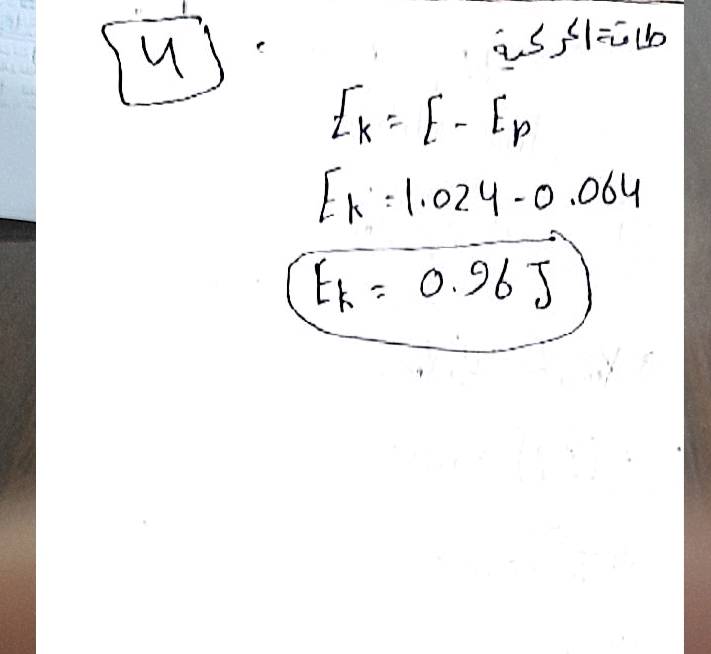 4
طاقة الحركية
Ek = E - Ep
Ek = 1.024 - 0.064
Ek = 0.96 J